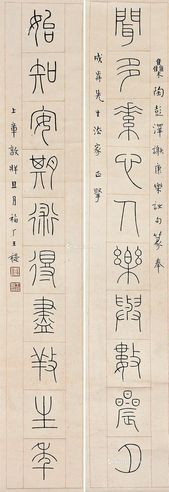 集陶彭澤謝康樂詩句篆奉
聞多素心人樂與數晨夕
先生法家正擘
始知安期術得盡養生年
上章敦牂且月福厂王禔